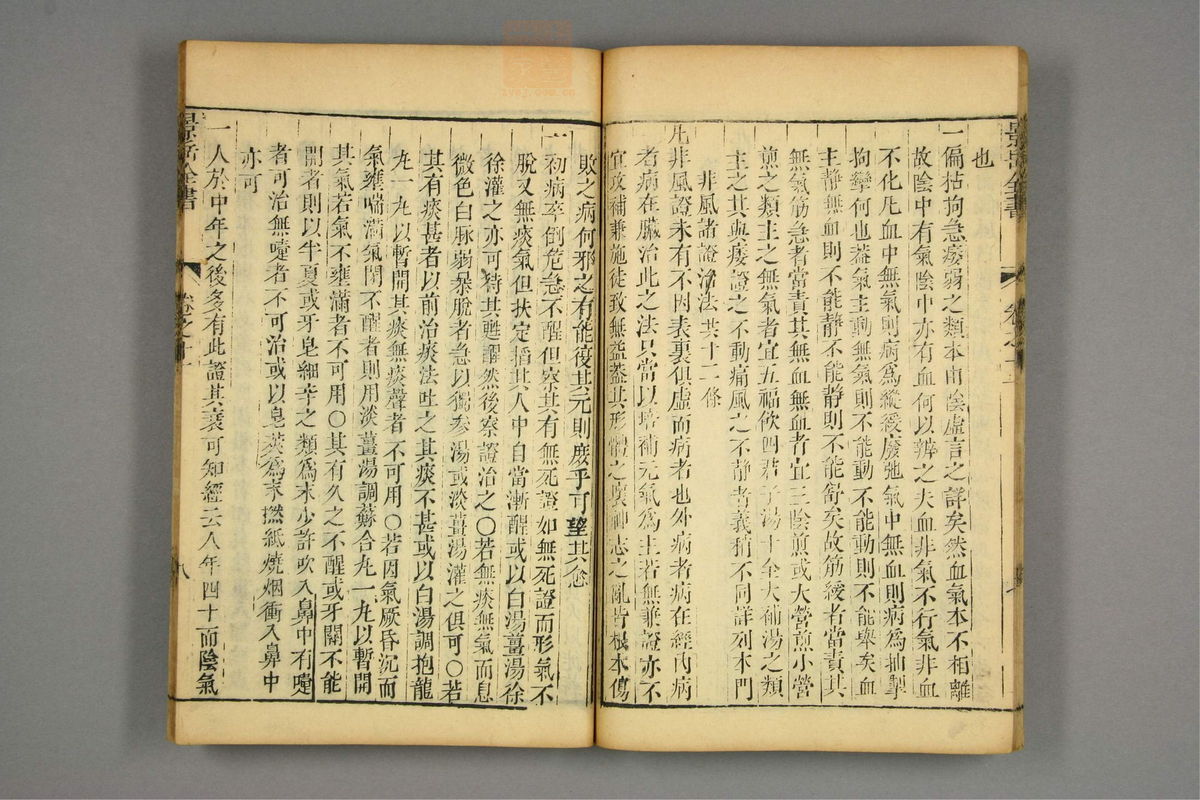 景岳全書
也
一偏枯拘急痿弱之類本由陰虛言之詳矣然血氣本不相離
故陰中有氣陰中亦有血何以辨之夫血非氣不行氣非血
不化凡血中無氣則病爲縱緩廢弛氣中無血則病爲抽掣
拘攣何也葢氣主動無氣則不能動不能動則不能舉矣血
主靜無血則不能靜不能靜則不能舒矣故筋緩者當責其
無氣筋急者當責其無血無血者宜三陰煎或大營煎小營
煎之類主之無氣者宜五福飲四君子湯十全大補湯之類
主之其與痿證之不動痛風之不靜者義稍不同詳列本門
非風諸證治法共十二條
凡非風證未有不因表裏俱虛而病者也外病者病在經內病
者病在臟治此之法只當以培補元氣爲主若無兼證亦不
宜攻補兼施徒致無益葢其形體之壞神志之亂皆根本傷
敗之病何邪之有能復其元則庶乎可望其愈
一初病卒倒危急不醒但察其有無死證如無死證而形氣不
脫又無痰氣但扶定掐其人中自當漸醒或以白湯薑湯徐
徐灌之亦可待其甦醒然後察證治之〇若無痰無氣而息
微色白脉弱暴脫者急以獨參湯或淡薑湯灌之俱可〇若
其有痰甚者以前治痰法吐之其痰不甚或以白湯調抱龍
丸一丸以暫開其痰無痰聲者不可用〇若因氣厥昏沉而
氣壅喘滿氣閉不醒者則用淡薑湯調蘇合丸一丸以暫開
其氣若氣不壅滿者不可用〇其有久之不醒或牙關不能
開者則以半夏或牙皂細辛之類爲末少許吹入鼻中有嚏
者可治無嚏者不可治或以皂莢爲末撚紙燒烟衝入鼻中
亦可
一人於中年之後多有此證其衰可知經云人年四十而陰氣
景岳全書 卷之十一 八